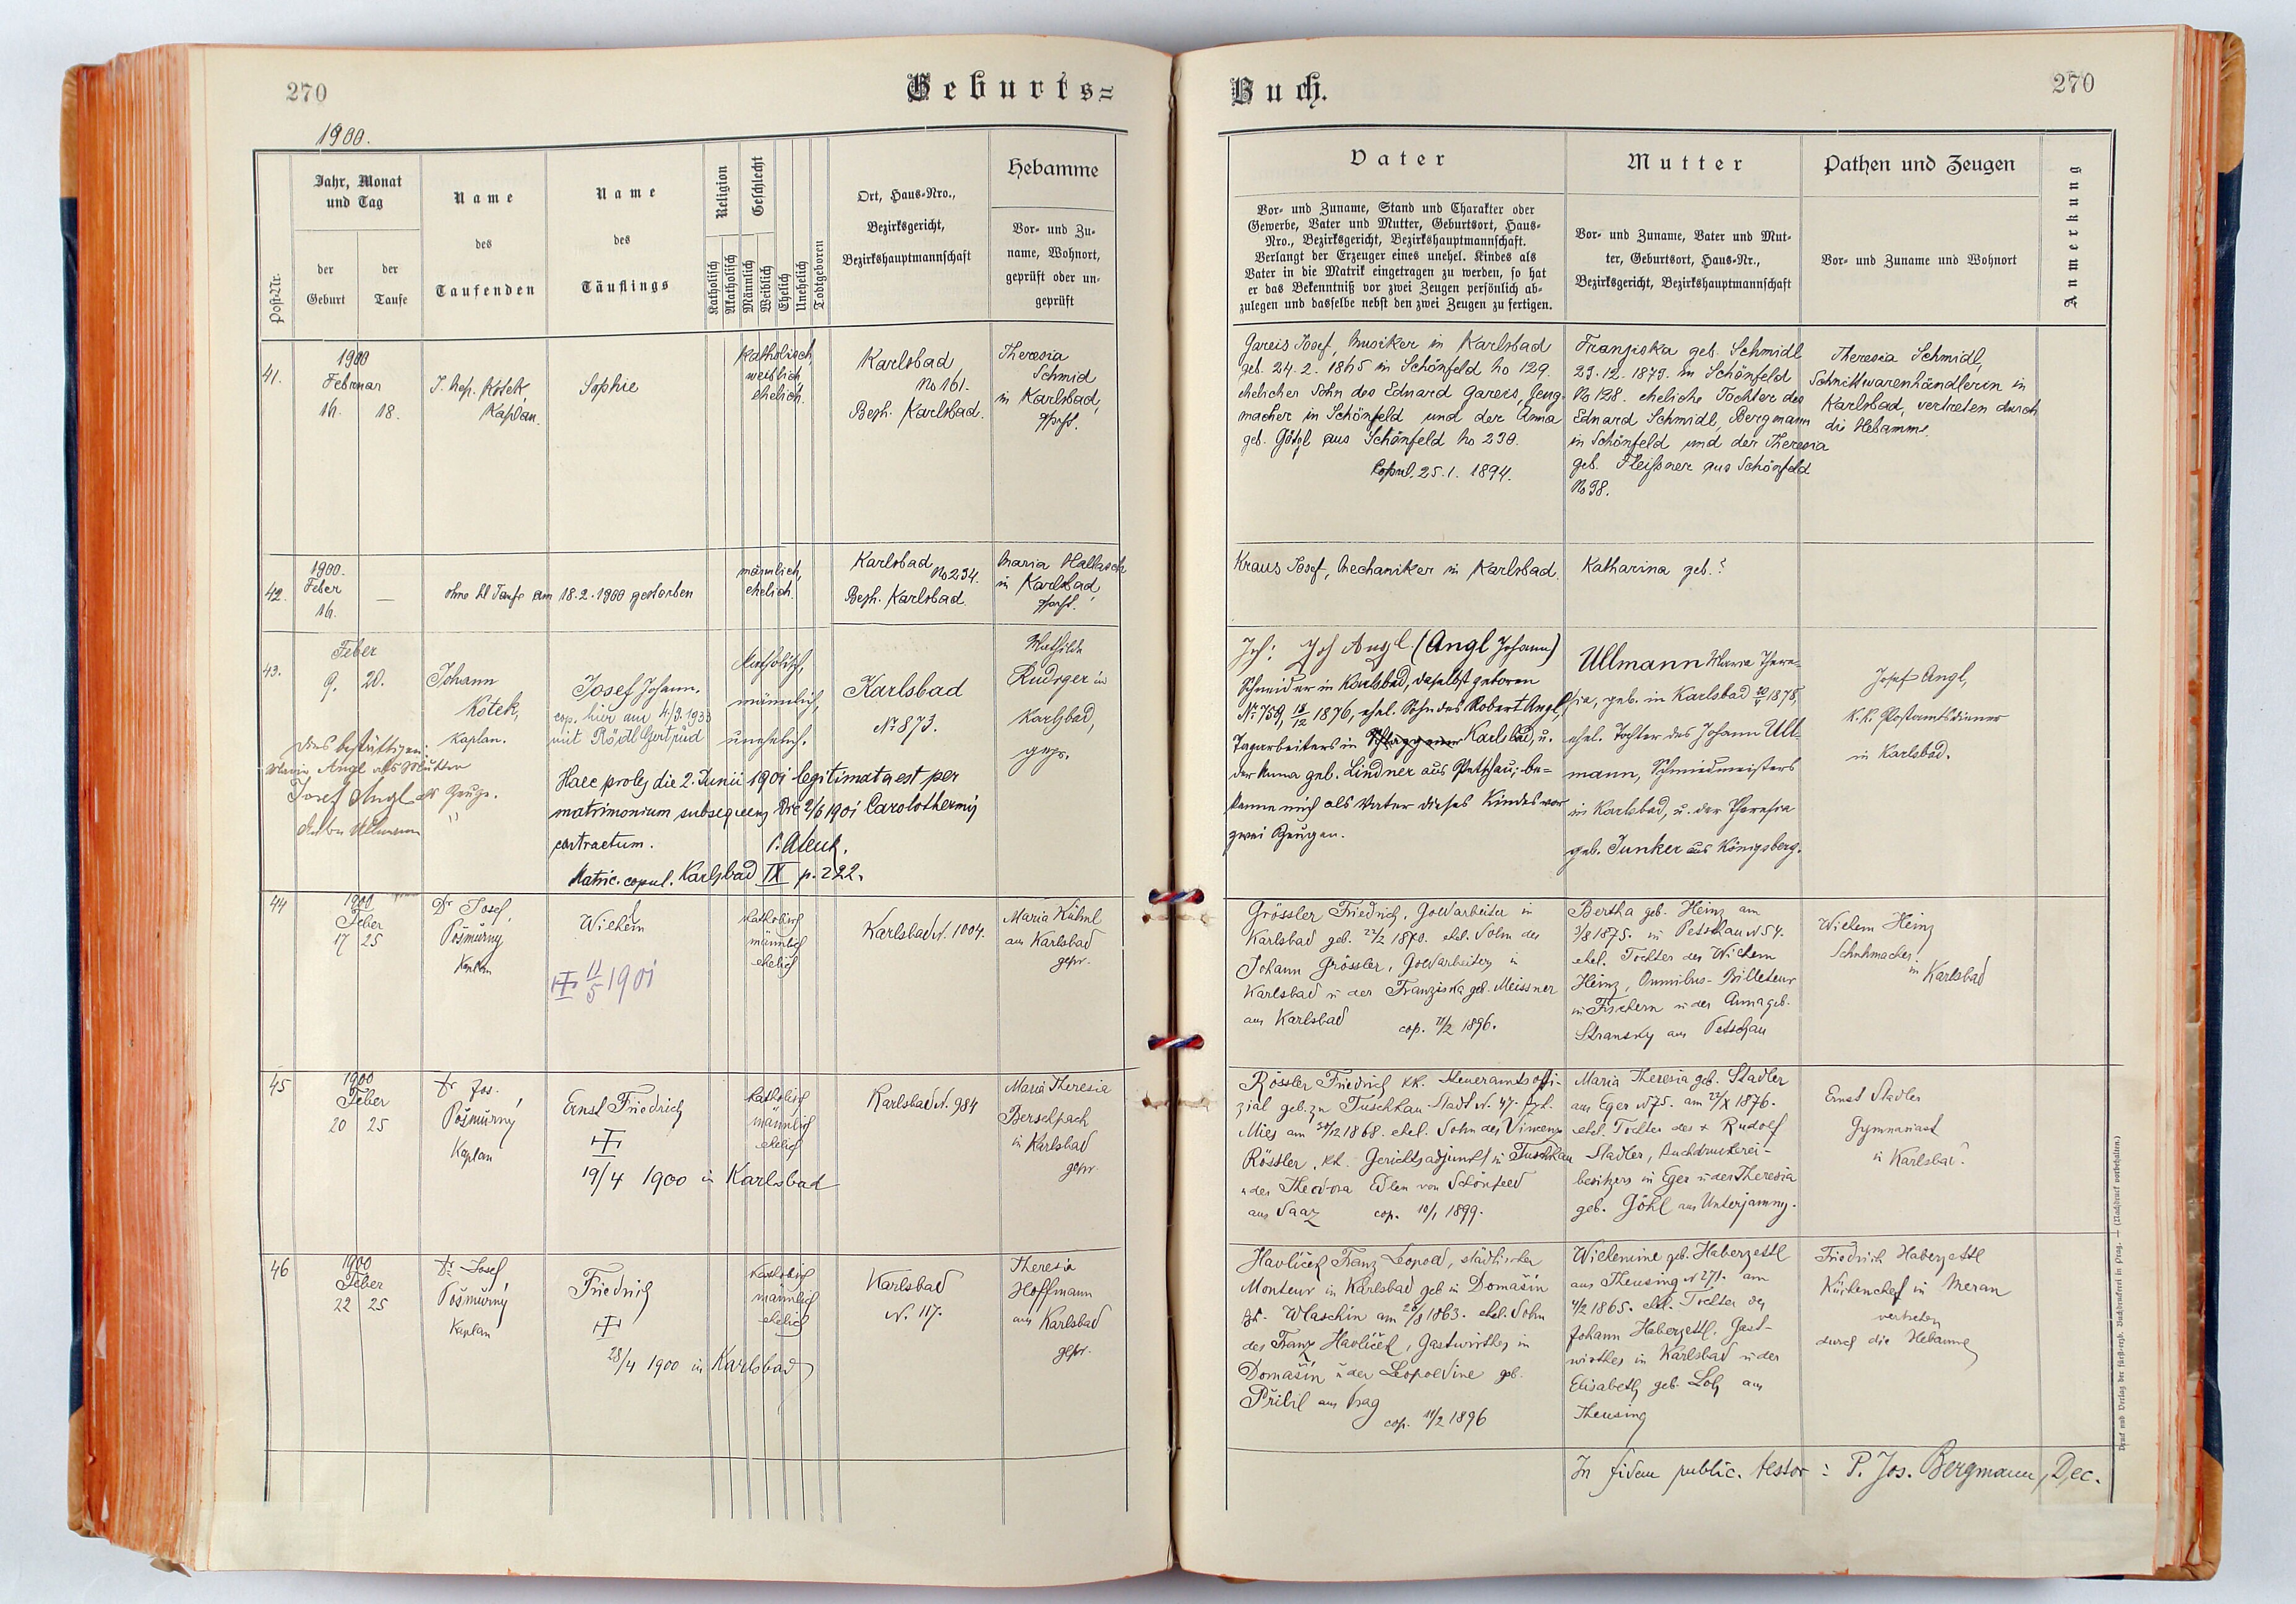 270
Geburts=
1900.
Post-Nr.
Jahr, Monat
und Tag
der
Geburt
der
Taufe
Name
des
Taufenden
Name
des
Täuflings
Religion
Katholisch
Akatholisch
Geschlecht
Männlich
Weiblich
Ehelich
Unehelich
Todtgeboren
Ort, Haus-Nro.,
Bezirksgericht,
Bezirkshauptmannschaft
Hebamme
Vor- und Zu-
name, Wohnort,
geprüft oder un-
geprüft
41.
1900
Februar
16. 18.
J. Nep. Kotek,
Kaplan.
Sophie
katholisch,
weiblich,
ehelich.
Karlsbad
No 161.
Bezh. Karlsbad.
Theresia
Schmid
in Karlsbad,
geprft.
42.
1900.
Feber
16.
—
ohne hl Taufe am 18.2.1900 gestorben
männlich,
ehelich.
Karlsbad
No 234.
Bezh. Karlsbad
Maria Hallasch
in Karlsbad,
geprft.
43.
Feber
9. 20.
Johann
Kotek,
Kaplan.
Josef Johann.
cop. hier am 4./3. 1933
mit Rödl Gertrud
katholisch,
männlich,
unehelich.
Karlsbad
Nr 873.
Mathilde
Rudrger in
Karlsbad,
gepr.
Dies bestättigen:
Maria Angl als Mutter
Josef Angl als Zeuge.
Anton Ullmann "
Haec proles die 2. Junii 1901 legitimata est per
matrimonium subsequens die 2/6 1901 Carolothermis
contractum.
Matric. copul. Karlsbad IX p. 222.
44
1900
Feber
17 25
Dr Josef
Pošmurny
Kaplan
Wilhelm
11/5 1901
katholisch
männlich
ehelich
Karlsbad N. 1004.
Maria Kühnl
aus Karlsbad
gepr.
45
1900
Feber
20 25
Dr Jos.
Pošmurny
Kaplan
Ernst Friedrich
19/4 1900 in Karlsbad
katholisch
männlich
ehelich
Karlsbad N. 984
Maria Theresia
Berschpach
in Karlsbad
gepr.
46
1900
Feber
22 25
Dr Josef
Pošmurny
Kaplan
Friedrich
28/4 1900 in Karlsbad
katholisch
männlich
ehelich
Karlsbad
N. 117.
Theresia
Hoffmann
aus Karlsbad
gepr.
Buch.
270
Vater
Vor- und Zuname, Stand und Charakter oder
Gewerbe, Vater und Mutter, Geburtsort, Haus-
Nro., Bezirksgericht, Bezirkshauptmannschaft.
Verlangt der Erzeuger eines unehel. Kindes als
Vater in die Matrik eingetragen zu werden, so hat
er das Bekenntniß vor zwei Zeugen persönlich ab-
zulegen und dasselbe nebst den zwei Zeugen zu fertigen.
Mutter
Vor- und Zuname, Vater und Mut-
ter, Geburtsort, Haus-Nr.,
Bezirksgericht, Bezirkshauptmannschaft
Pathen und Zeugen
Vor- und Zuname und Wohnort
Anmerkung
Gareis Josef, Musiker in Karlsbad
geb. 24. 2. 1865 in Schönfeld No 129.
ehelicher Sohn des Eduard Gareis, Zeug-
macher in Schönfeld und der Anna
geb. Götzl aus Schönfeld No 230.
Copul. 25. 1. 1894.
Franziska geb. Schmidl
23. 12. 1873. in Schönfeld
No 128. eheliche Tochter des
Eduard Schmidl, Bergmann
in Schönfeld und der Theresia
geb. Fleißner aus Schönfeld
No 98.
Theresia Schmidl,
Schnittwarenhändlerin in
Karlsbad, vertreten durch
die Hebamme.
Kraus Josef, Mechaniker in Karlsbad.
Katharina geb. ?
Ich: Joh Angl. (Angl Johann)
Schneider in Karlsbad, daselbst geboren
Nr. 759, 18/12 1876, ehel. Sohn des Robert Angl,
Tagarbeiters in Karlsbad, u.
der Anna geb. Lindner aus Petschau; be-
kenne mich als Vater dieses Kindes vor
zwei Zeugen.
Ullmann Maria There-
sia, geb. in Karlsbad 1878,
ehel. Tochter des Johann Ull-
mann, Schmiedmeisters
in Karlsbad, u. der Theresia
geb. Junker aus Königsberg.
Josef Angl,
k. k. Postamtsdiener
in Karlsbad.
Grössler Friedrich, Goldarbeiter in
Karlsbad geb. 22/2 1870. ehel. Sohn des
Johann Grössler, Goldarbeiters in
Karlsbad u der Franziska geb. Meissner
aus Karlsbad
cop. 11/2 1896.
Bertha geb. Heinz am
3/8 1875. in Petschau N 54.
ehel. Tochter des Wilhelm
Heinz, Omnibus-Billeteur
in Fischern u der Anna geb.
Stransky aus Petschau
Wilhelm Heinz
Schuhmacher
in Karlsbad
Rössler Friedrich kk. Steueramtsoffi-
zial geb. zu Tuschkau-Stadt N. 47.
Mies am 30/12 1868. ehel. Sohn des Vincenz
Rössler, kk. Gerichtsadjunkt in Tuschkau
u der Theodora Edlen von Schönfeld
aus Saaz cop. 10/1 1899.
Maria Theresia geb. Stadler
aus Eger N 75. am 22/X 1876.
ehel. Tochter des + Rudolf
Stadler, Buchdruckerei-
besitzers in Eger u der Theresia
geb. Göhl aus Unterjamny.
Ernst Stadler
Gymnasiast
in Karlsbad.
Havlíček Franz Leopold, städtischer
Monteur in Karlsbad geb in Domašin
Wlaschin am 26/8 1863. ehel. Sohn
des Franz Havlíček, Gastwirthes in
Domašin u der Leopoldine geb.
Přibil aus Prag
cop. 11/2 1896
Wilhelmine geb. Haberzettl
aus Theusing N 271. am
4/2 1865. ehel. Tochter des
Johann Haberzettl, Gast-
wirthes in Karlsbad u der
Elisabeth geb. Loh aus
Theusing
Friedrich Haberzettl
Küchenchef in Meran
vertreten
durch die Hebamme
In fidem public. testor: P. Jos. Bergmann, Dec.
Druck und Verlag der fürst-erzb. Buchdruckerei in Prag. — (Nachdruck vorbehalten.)